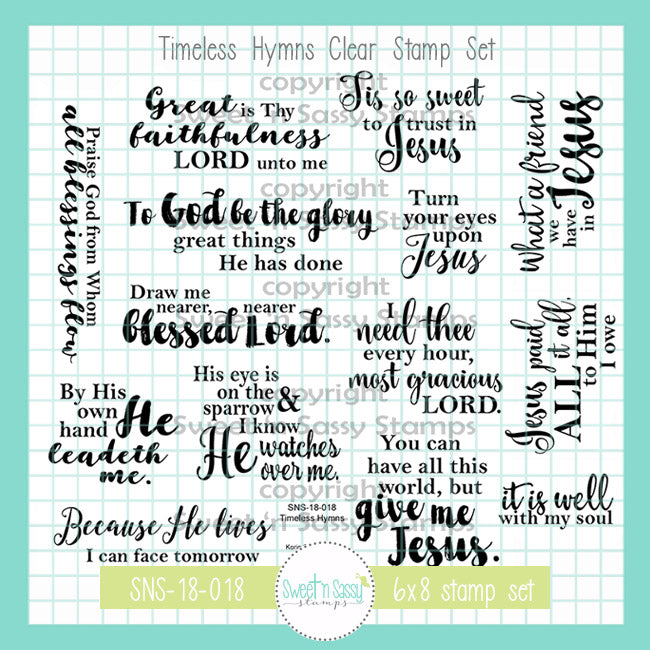 Timeless Hymns Clear Stamp Set
copyright
Sweet 'n Sassy Stamps
Praise God from Whom
all blessings flow
Great is Thy
faithfulness
LORD unto me
'Tis so sweet
to trust in
Jesus
What a friend
we
have
in Jesus
copyright
Sweet 'n Sassy Stamps
To God be the glory
great things
He has done
Turn
your eyes
upon
Jesus
copyright
Sweet 'n Sassy Stamps
Draw me
nearer, nearer
blessed Lord.
I
need thee
every hour,
most gracious
LORD.
Jesus paid
ALL it all.
to Him
I owe
copyright
Sweet 'n Sassy Stamps
By His
own
hand He
leadeth
me.
His eye is
on the
sparrow &
I know
He watches
over me.
You can
have all this
world, but
give me
Jesus.
it is well
with my soul
copyright
Sweet 'n Sassy Stamps
Because He lives
I can face tomorrow
SNS-18-018
Timeless Hymns
copyright
SNS-18-018
Sweet 'n Sassy
stamps
6x8 stamp set